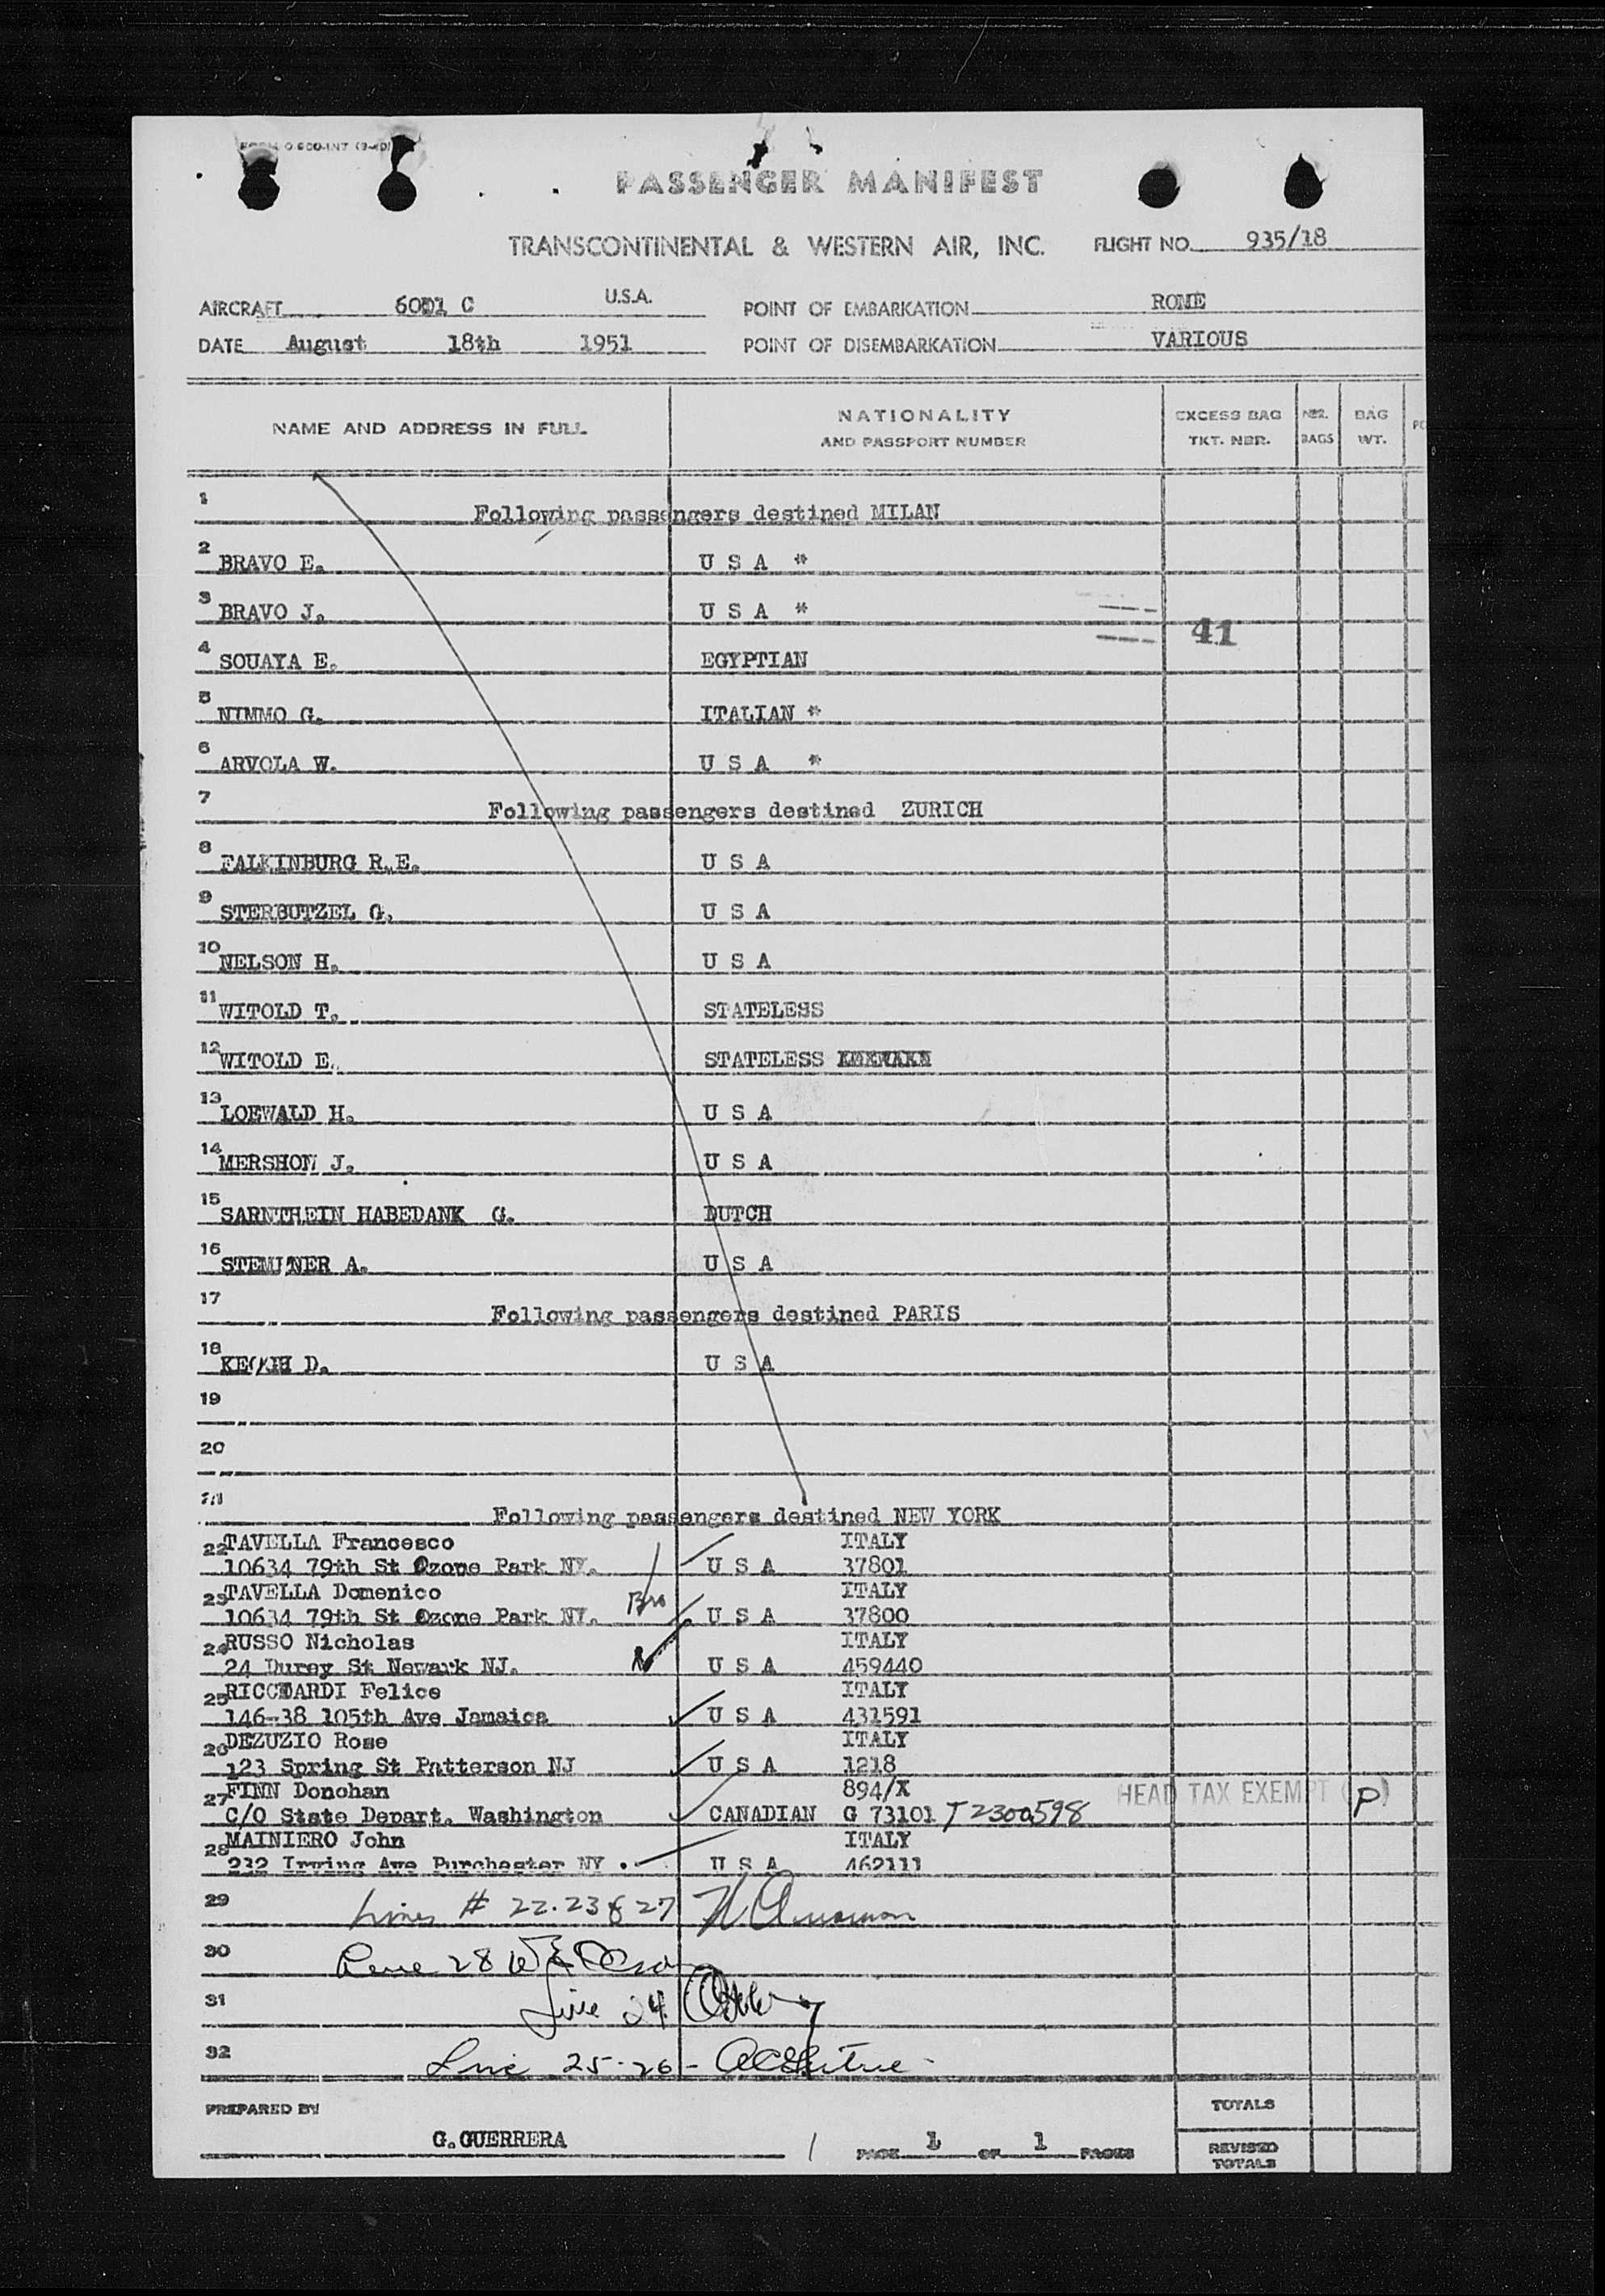 FORM O.600-INT
PASSENGER MANIFEST
TRANSCONTINENTAL & WESTERN AIR, INC. FLIGHT NO. 935/18
AIRCRAFT 6001 C U.S.A. POINT OF EMBARKATION ROME
DATE August 18th 1951 POINT OF DISEMBARKATION VARIOUS
NAME AND ADDRESS IN FULL NATIONALITY AND PASSPORT NUMBER EXCESS BAG TKT. NBR. NBR. BAGS BAG WT.
1 Following passengers destined MILAN
2 BRAVO E. U S A *
3 BRAVO J. U S A *
41
4 SOUAYA E. EGYPTIAN
5 NIMMO G. ITALIAN *
6 ARVOLA W. U S A *
7 Following passengers destined ZURICH
8 FALKINBURG R.E. U S A
9 STERBUTZEL G. U S A
10 NELSON H. U S A
11 WITOLD T. STATELESS
12 WITOLD E. STATELESS
13 LOEWALD H. U S A
14 MERSHON J. U S A
15 SARNTHEIN HABEDANK G. DUTCH
16 A. U S A
17 Following passengers destined PARIS
18 D. U S A
19
20
21 Following passengers destined NEW YORK
22 TAVELLA Francesco ITALY
10634 79th St Ozone Park NY. U S A 37801
23 TAVELLA Domenico ITALY
10634 79th St Ozone Park NY. Bro U S A 37800
24 RUSSO Nicholas ITALY
24 Durey St Newark NJ. U S A 459440
25 RICCIARDI Felice ITALY
146-38 105th Ave Jamaica U S A 431591
26 DEZUZIO Rose ITALY
123 Spring St Patterson NJ U S A 1218
27 FINN Donohan 894/X HEAD TAX EXEMPT (P)
C/O State Depart. Washington CANADIAN G 73101 T2300598
28 MAINIERO John ITALY
232 Irving Ave Purchester NY . U S A 462111
29 Lines # 22.23 & 27
30 Line 28
31 Line 24
32 Line 25-26 -
PREPARED BY G.GUERRERA PAGE 1 OF 1 PAGES
TOTALS
REVISED TOTALS